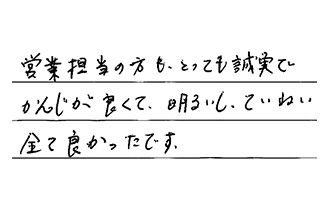 営業担当の方も、とっても誠実で
かんじが良くて、明るいし、ていねい
全て良かったです。